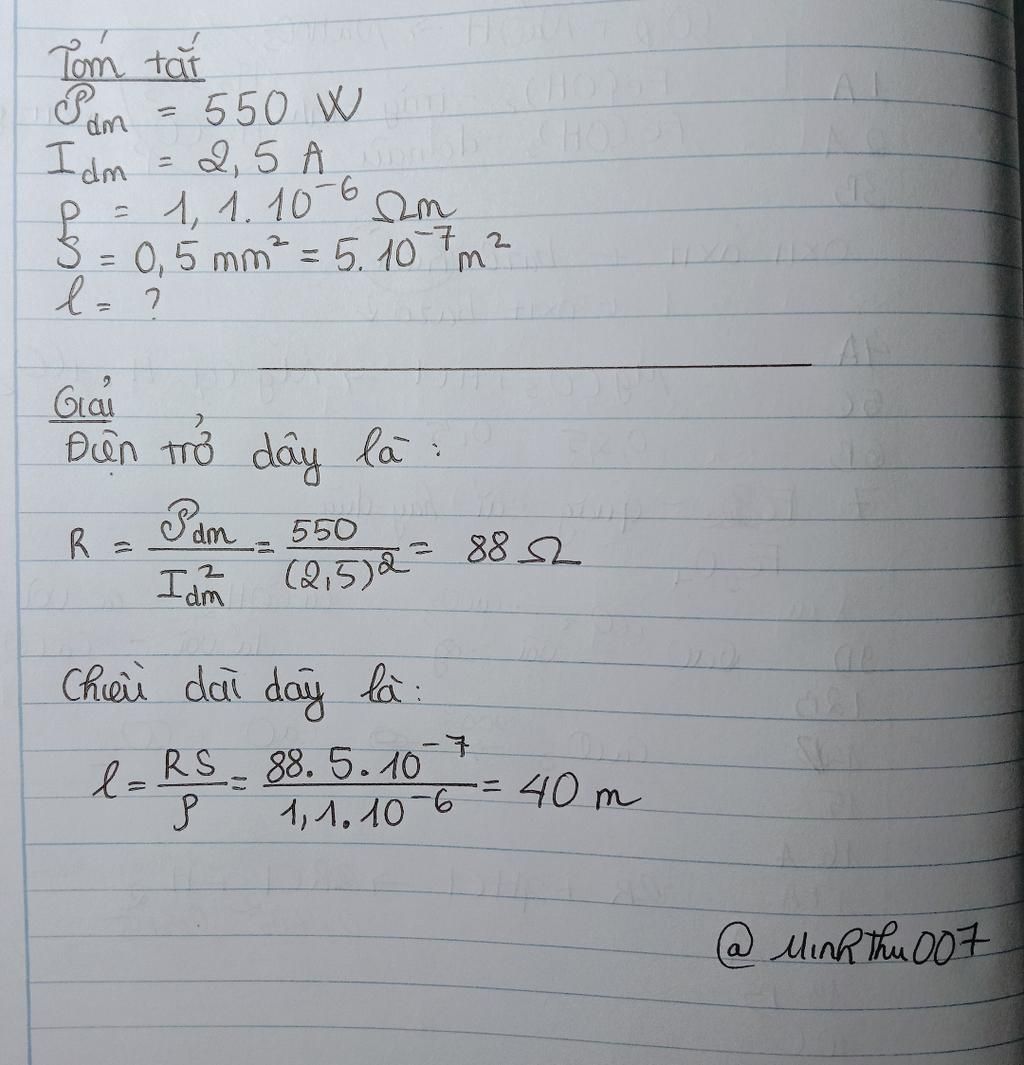 Tóm tắt
𝒫đm = 550 W
Iđm = 2,5 A
ρ = 1,1.10⁻⁶ Ωm
S = 0,5 mm² = 5.10⁻⁷ m²
l = ?
Giải
Điện trở dây là :
R = 𝒫đm / Iđm² = 550 / (2,5)² = 88 Ω
Chiều dài dây là :
l = RS / ρ = 88.5.10⁻⁷ / 1,1.10⁻⁶ = 40 m
@ MinhThu007